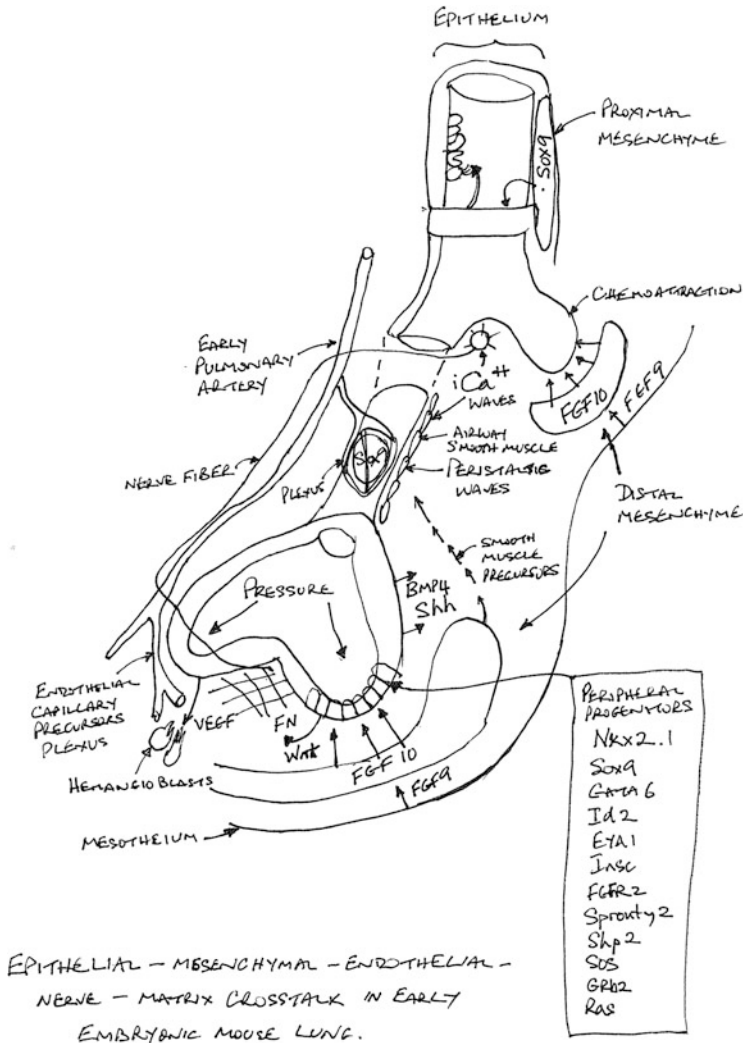 EPITHELIUM
PROXIMAL
MESENCHYME
SOX9
CHEMOATTRACTION
EARLY
PULMONARY
ARTERY
iCa++
WAVES
FGF10
FGF9
AIRWAY
SMOOTH MUSCLE
PERISTALTIC
WAVES
Sox9
PLEXUS
NERVE FIBER
DISTAL
MESENCHYME
SMOOTH
MUSCLE
PRECURSORS
PRESSURE
BMP4
Shh
ENDOTHELIAL
CAPILLARY
PRECURSORS
PLEXUS
VEGF
FN
Wnt
FGF10
FGF9
HEMANGIOBLASTS
MESOTHELIUM
PERIPHERAL
PROGENITORS
Nkx2.1
Sox9
GATA6
Id2
EYA1
Insc
FGFR2
Sprouty2
Shp2
SOS
GRb2
Ras
EPITHELIAL - MESENCHYMAL - ENDOTHELIAL -
NERVE - MATRIX CROSSTALK IN EARLY
EMBRYONIC MOUSE LUNG.